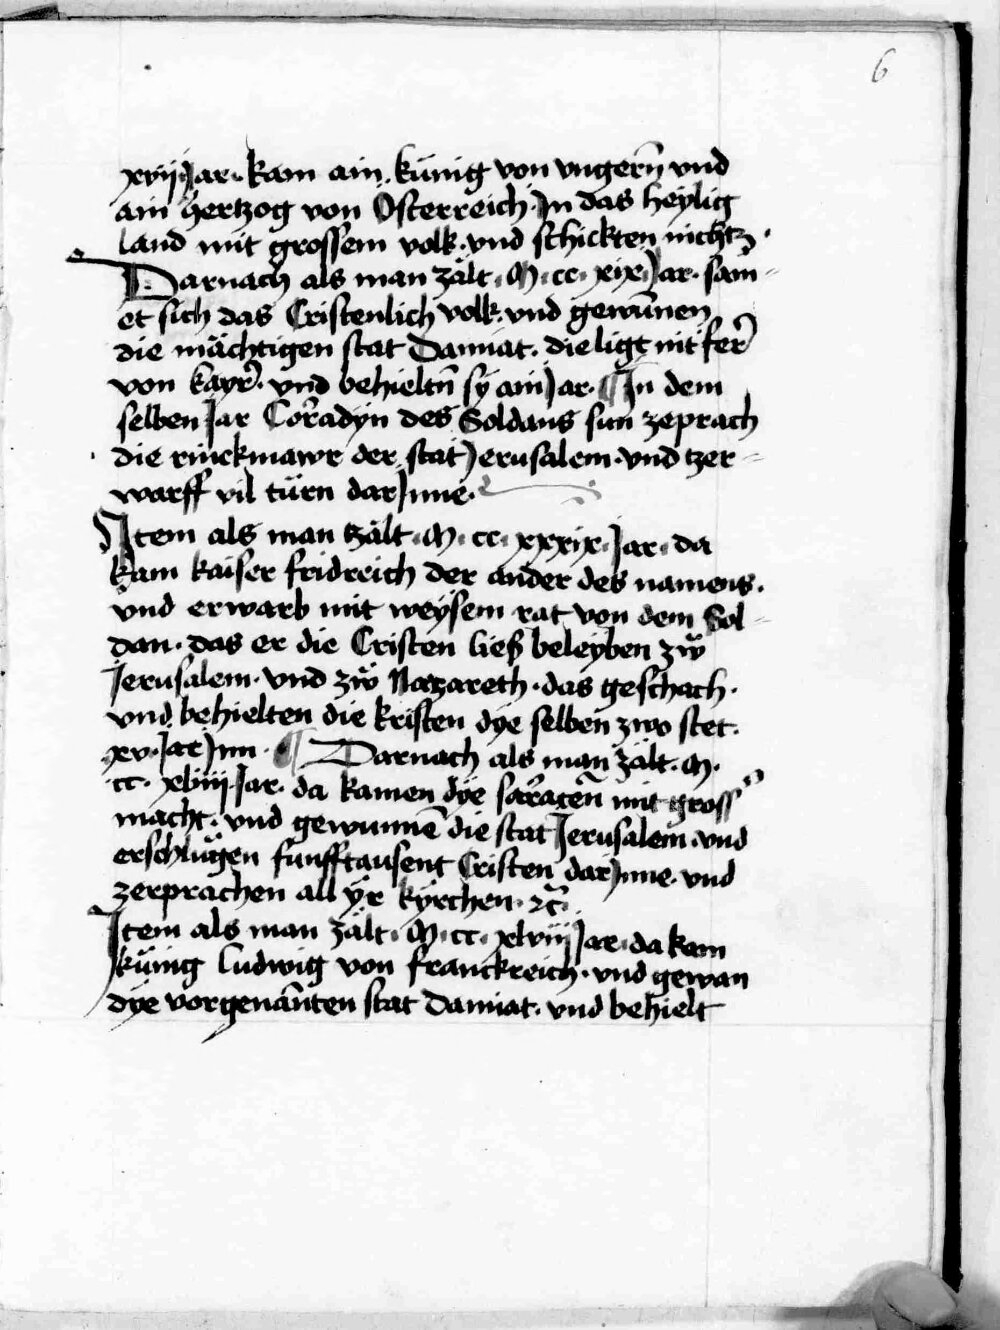 6
xvij· Jar· kam ain künig von vngerñ vnd
ain hertzog von Österreich· Jn das heylig
land mit grossem volk· vnd schickten nichtz·
Darnach als man zält· M· cc· xix· Jar· sam̄-
et sich das Cristenlich volk· vnd gewūnen
die mächtigen stat Damiat· die ligt nit fer̃
von kayr̃· vnd behieltn̄ sy ain Jar· ¶ Jn dem
selben Jar Cor̃adyn des Soldans sun zeprach
die rinckmawr der stat Jerusalem· vnd tzer-
warff vil türn dar Jnne·
Jtem als man tzält· M· cc· xxxix· Jar· da
kam kaiser fridreich der ander des namens·
vnd erwarb mit weysem rat von dem Sol-
dan· das er die Cristen ließ beleyben zẅ
Jerusalem· vnd zẅ Nazareth· das geschach·
vnd behielten die kristen dye selben zwo stet·
xv· Jar Jnn· ¶ Darnach als man zält· M·
cc· xliiij· Jar· da kamen dye sar̃acen̄ mit gross̃
macht· vnd gewunnē die stat Jerusalem· vnd
erschlügen funfftausent Cristen dar Jnne· vnd
zerprachen all ÿr kyrchen· ⁊c̃·
Jtem als man zält· M· cc· xlviij Jar· da kam
künig Ludwig von franckreich· vnd gewan
dye vorgenān̄ten stat Damiat· vnd behielt